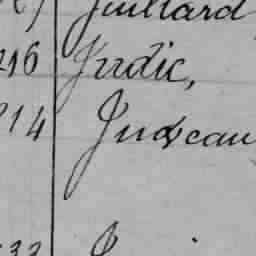 Juillard
216 Judic,
214 Judeau